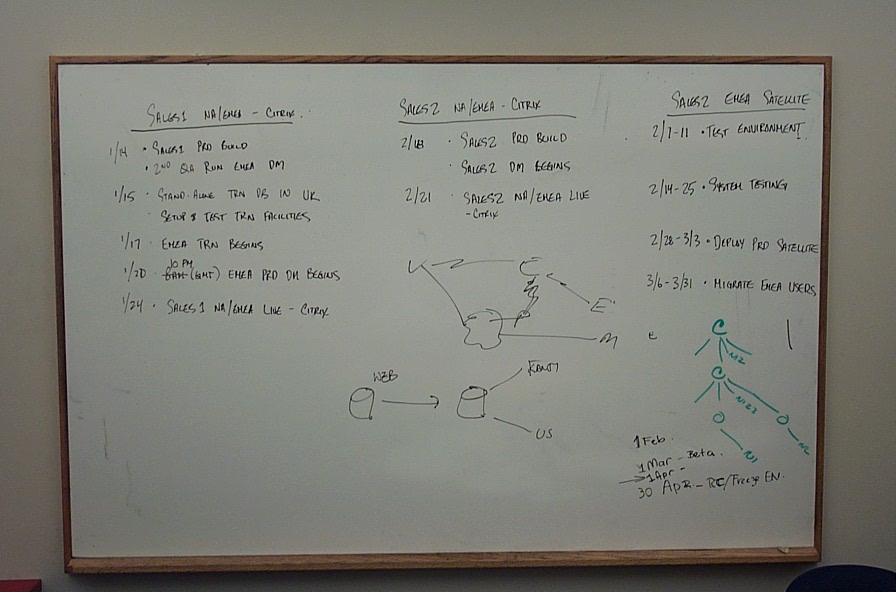 SALES1 NA/EMEA - CITRIX.
1/14 • SALES1 PRD BUILD
• 2ND QA RUN EMEA DM
1/15 • STAND-ALONE TRN DB IN UK
• SETUP & TEST TRN FACILITIES
1/17 • EMEA TRN BEGINS
10 PM
1/20 • 8AM (GMT) EMEA PRD DM BEGINS
1/24 • SALES1 NA/EMEA LIVE - CITRIX
SALES2 NA/EMEA - CITRIX
2/18 • SALES2 PRD BUILD
• SALES2 DM BEGINS
2/21 • SALES2 NA/EMEA LIVE
- CITRIX
SALES2 EMEA SATELLITE
2/7-11 • TEST ENVIRONMENT
2/14-25 • SYSTEM TESTING
2/28-3/3 • DEPLOY PRD SATELLITE
3/6-3/31 • MIGRATE EMEA USERS
C
E
M
E
WEB
US
C
N2
C
N123
N1
1 Feb.
1 Mar - Beta.
1 Apr -
30 Apr. - RC/Freeze EN.